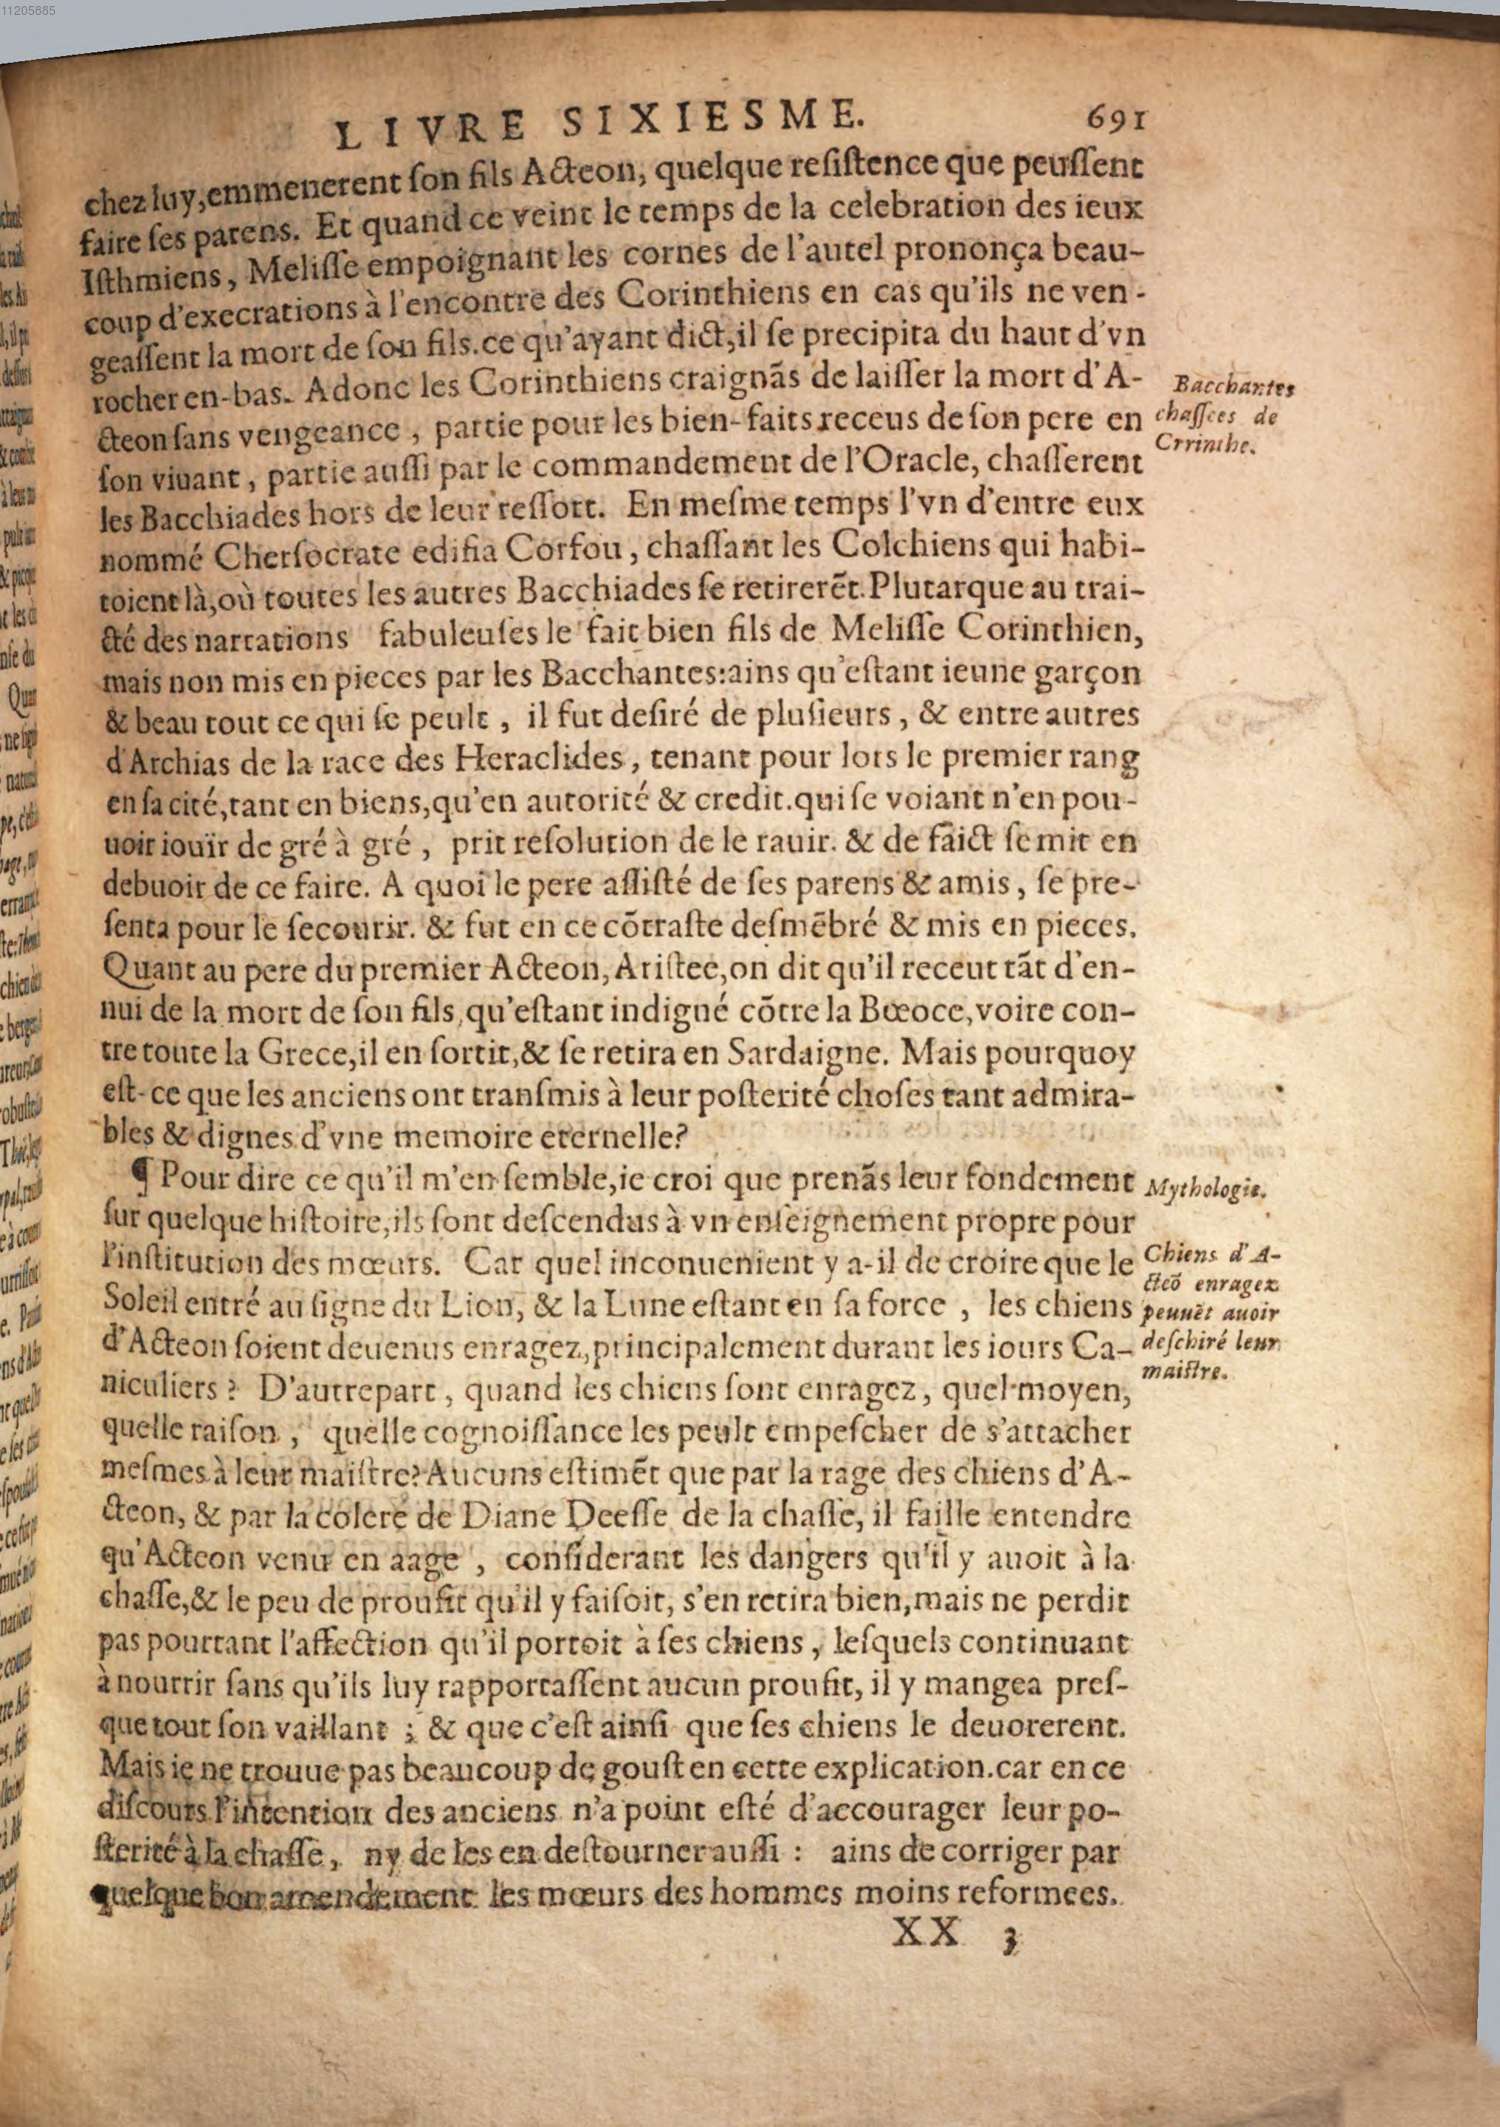 11205685
LIVRE SIXIESME. 691
chez luy, emmenerent ſon fils Acteon, quelque reſiſtence que peuſſent
faire ſes parens. Et quand ce veint le temps de la celebration des ieux
Iſthmiens, Meliſſe empoignant les cornes de l'autel prononça beau-
coup d'execrations à l'encontre des Corinthiens en cas qu'ils ne ven-
geaſſent la mort de ſon fils. ce qu'ayant dict, il ſe precipita du haut d'vn
rocher en-bas. Adonc les Corinthiens craignãs de laiſſer la mort d'A-
cteon ſans vengeance, partie pour les bien-faits receus de ſon pere en
ſon viuant, partie auſſi par le commandement de l'Oracle, chaſſerent
les Bacchiades hors de leur reſſort. En meſme temps l'vn d'entre eux
nommé Cherſocrate edifia Corfou, chaſſant les Colchiens qui habi-
toient là, où toutes les autres Bacchiades ſe retirerẽt. Plutarque au trai-
cté des narrations fabuleuſes le fait bien fils de Meliſſe Corinthien,
mais non mis en pieces par les Bacchantes: ains qu'eſtant ieune garçon
& beau tout ce qui ſe peult, il fut deſiré de pluſieurs, & entre autres
d'Archias de la race des Heraclides, tenant pour lors le premier rang
en ſa cité, tant en biens, qu'en autorité & credit. qui ſe voiant n'en pou-
uoir iouïr de gré à gré, prit reſolution de le rauir. & de faict ſe mit en
debuoir de ce faire. A quoi le pere aſſiſté de ſes parens & amis, ſe pre-
ſenta pour le ſecourir. & fut en ce cõtraſte deſmẽbré & mis en pieces.
Quant au pere du premier Acteon, Ariſtee, on dit qu'il receut tãt d'en-
nui de la mort de ſon fils, qu'eſtant indigné cõtre la Bœoce, voire con-
tre toute la Grece, il en ſortit, & ſe retira en Sardaigne. Mais pourquoy
eſt-ce que les anciens ont tranſmis à leur poſterité choſes tant admira-
bles & dignes d'vne memoire eternelle?
¶ Pour dire ce qu'il m'en ſemble, ie croi que prenãs leur fondement
ſur quelque hiſtoire, ils ſont deſcendus à vn enſeignement propre pour
l'inſtitution des mœurs. Car quel inconuenient y a-il de croire que le
Soleil entré au ſigne du Lion, & la Lune eſtant en ſa force, les chiens
d'Acteon ſoient deuenus enragez, principalement durant les iours Ca-
niculiers? D'autrepart, quand les chiens ſont enragez, quel moyen,
quelle raiſon, quelle cognoiſſance les peult empeſcher de s'attacher
meſmes à leur maiſtre? Aucuns eſtimẽt que par la rage des chiens d'A-
cteon, & par la colere de Diane Deeſſe de la chaſſe, il faille entendre
qu'Acteon venu en aage, conſiderant les dangers qu'il y auoit à la
chaſſe, & le peu de proufit qu'il y faiſoit, s'en retira bien, mais ne perdit
pas pourtant l'affection qu'il portoit à ſes chiens, leſquels continuant
à nourrir ſans qu'ils luy rapportaſſent aucun proufit, il y mangea preſ-
que tout ſon vaillant; & que c'eſt ainſi que ſes chiens le deuorerent.
Mais ie ne trouue pas beaucoup de gouſt en cette explication. car en ce
diſcours l'intention des anciens n'a point eſté d'accourager leur po-
ſterité à la chaſſe, ny de les en deſtourner auſſi: ains de corriger par
quelque bon amendement les mœurs des hommes moins reformees.
XX 3
Bacchantes
chaſſees de
Crrinthe.
Mythologie.
Chiens d'A-
cteõ enragez
peuuẽt auoir
deſchiré leur
maiſtre.